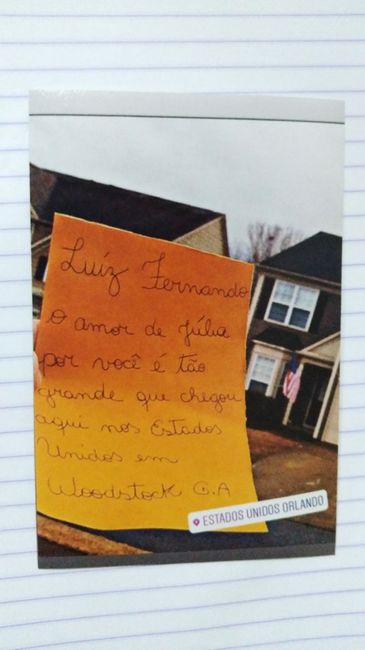 Luíz Fernando
o amor de Júlia
por você é tão
grande que chegou
aqui nos Estados
Unidos em
Woodstock G.A
ESTADOS UNIDOS ORLANDO